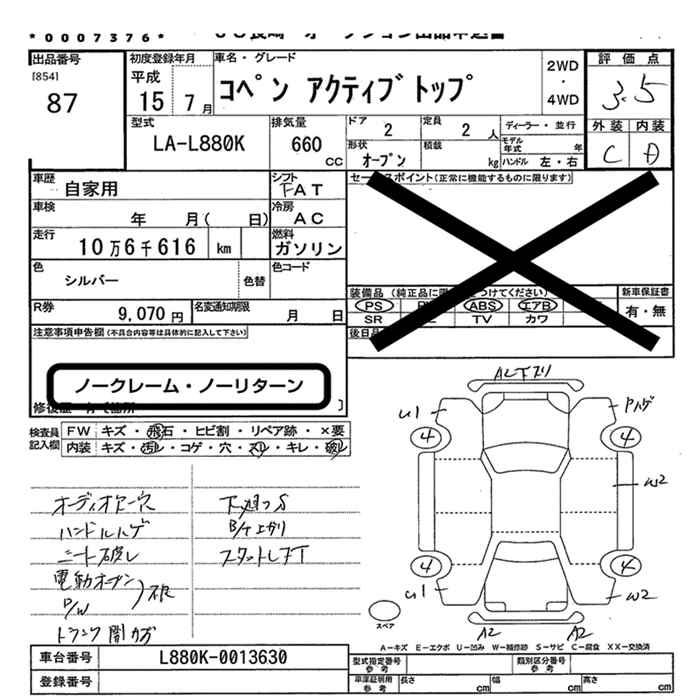 *0007376*
出品番号
[854]
87
初度登録年月
平成
15 7月
車名・グレード
コペン アクティブトップ
2WD
・
4WD
評価点
3.5
外装 内装
C D
型式
LA-L880K
排気量
660
CC
ドア 2
定員 2 人
ディーラー・並行
形状
オープン
積載
kg
モデル年式 年
ハンドル 左・右
車歴
自家用
シフト
FAT
車検
年 月( 日)
冷房
AC
走行
10万6千616 km
燃料
ガソリン
色
シルバー
色替
色コード
R券
9,070円
名変通知期限
月 日
セールスポイント(正常に機能するものに限ります)
装備品
PS ABS エアB
SR TV カワ
新車保証書
有・無
注意事項申告欄(不具合内容等は具体的に記入して下さい)
ノークレーム・ノーリターン
検査員記入欄
FW キズ・飛石・ヒビ割・リペア跡・×要
内装 キズ・汚レ・コゲ・穴・スレ・キレ・破レ
ハンドルハゲ
シート破レ
電動オープン
P/W
下廻りS
スタットレスT
U1
4
4
W2
4
4
U1
W2
A2
A2
スペア
A-キズ E-エクボ U-凹み W-補修跡 S-サビ C-腐食 XX-交換済
車台番号
L880K-0013630
登録番号
型式指定番号
参考
類別区分番号
参考
車庫証明用
参考
長さ cm
幅 cm
高さ cm